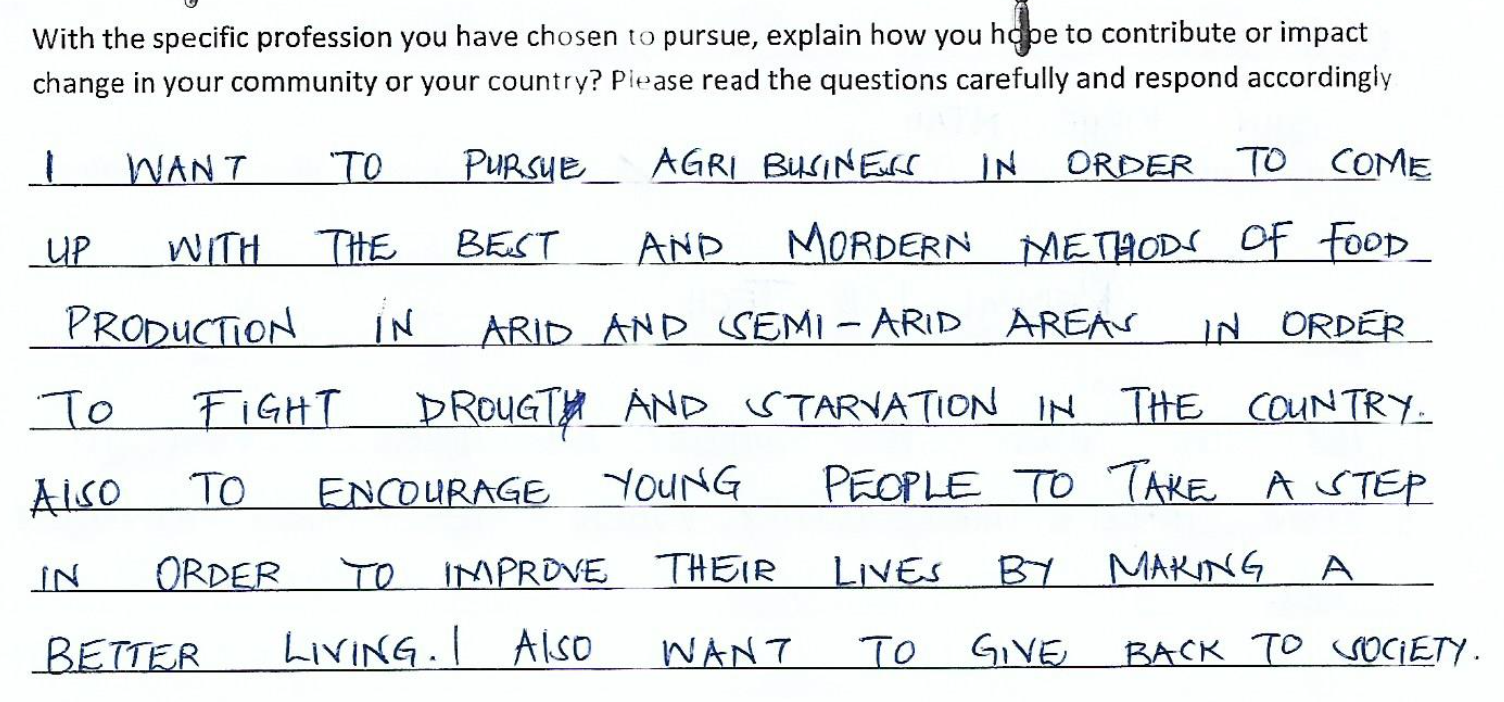 With the specific profession you have chosen to pursue, explain how you hope to contribute or impact
change in your community or your country? Please read the questions carefully and respond accordingly
I WANT TO PURSUE AGRI BUSINESS IN ORDER TO COME
UP WITH THE BEST AND MORDERN METHODS OF FOOD
PRODUCTION IN ARID AND SEMI-ARID AREAS IN ORDER
TO FIGHT DROUGTH AND STARVATION IN THE COUNTRY.
AlSO TO ENCOURAGE YOUNG PEOPLE TO TAKE A STEP
IN ORDER TO IMPROVE THEIR LIVES BY MAKING A
BETTER LIVING. I AlSO WANT TO GIVE BACK TO SOCIETY.